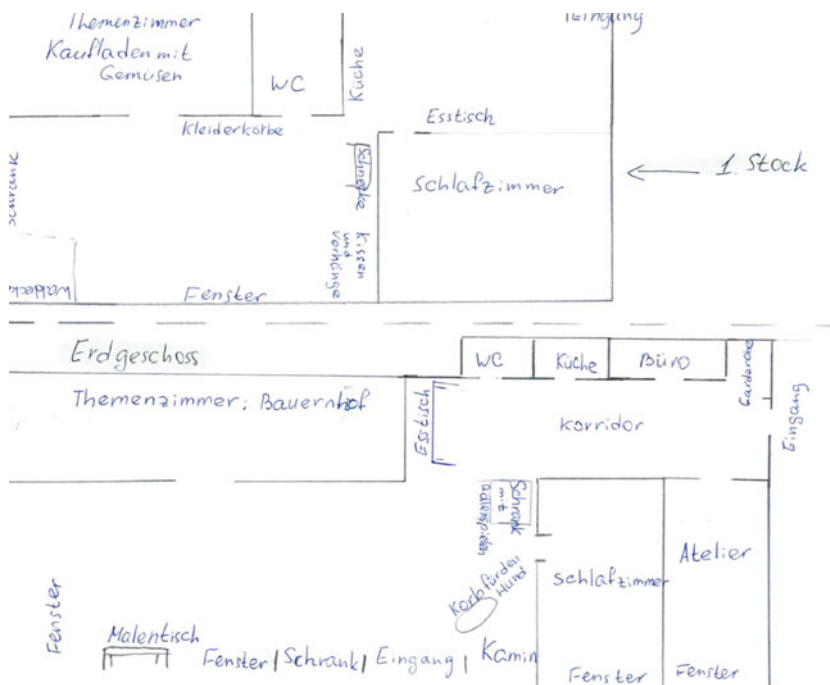 Themenzimmer
Kaufladen mit
Gemüsen
WC
Küche
Kleiderkörbe
Esstisch
Schrank
Schnecke
Schlafzimmer
1. Stock
Kissen
und
Vorhänge
Fenster
Erdgeschoss
WC
Küche
Büro
Garderobe
Themenzimmer: Bauernhof
Esstisch
Korridor
Eingang
Schrank
mit
Atelier
Schlafzimmer
Korb für den
Hund
Fenster
Malentisch
Fenster | Schrank | Eingang |
Kamin
Fenster
Fenster